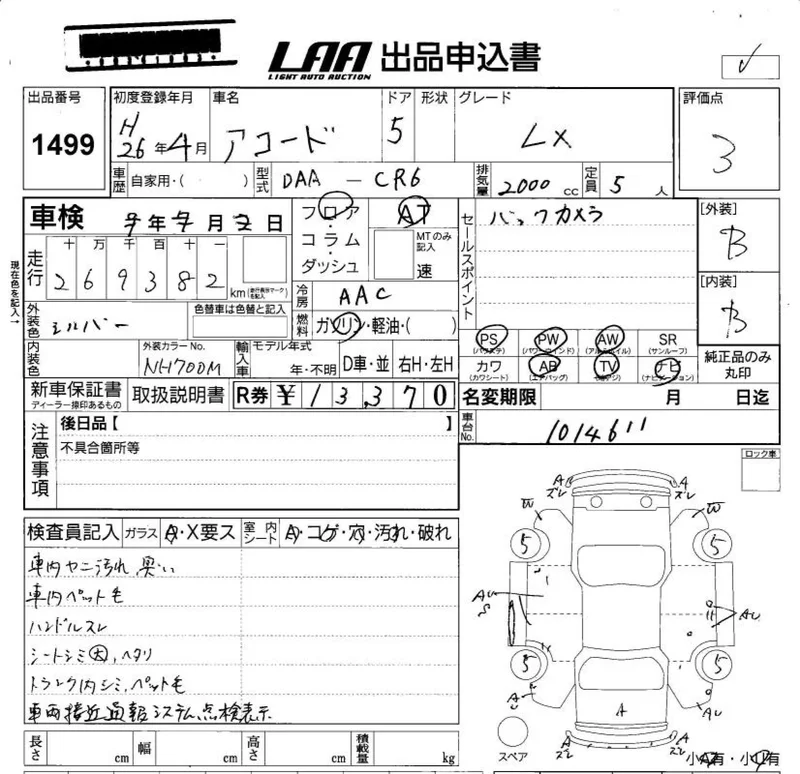 LAA 出品申込書
LIGHT AUTO AUCTION
出品番号 初度登録年月 車名 ドア 形状 グレード 評価点
1499 H26年4月 アコード 5 LX 3
車歴 自家用・( ) 型式 DAA-CR6 排気量 2000cc 定員 5人
車検 年 月 日
フロア・コラム・ダッシュ AT
MTのみ記入 速
セールスポイント バックカメラ
[外装] B
現在色を記入→
走行 十万千百十一
269382 km (走行表示マークを記入)
冷房 AAC
[内装] B
外装色 シルバー 色替車は色替と記入
燃料 ガソリン・軽油・( )
内装色 外装カラーNo. NH700M 輸入車 モデル年式 年・不明 D車・並 右H・左H
PS (パワステ) PW (パワーウインド) AW (アルミホイル) SR (サンルーフ)
カワ (カワシート) AB (エアバッグ) TV (アナデジ) ナビ (ナビゲーション)
純正品のみ丸印
新車保証書 ディーラー捺印あるもの 取扱説明書 R券 ¥13370
名変期限 月 日迄
注意事項 後日品【 】
不具合箇所等
車台No. 1014611
ロック車
検査員記入 ガラス A・X要ス 室内シート A・コゲ・穴・汚れ・破れ
車内ヤニ汚れ、臭い
車内ペット毛
ハンドルスレ
シートシミ大、ヘタリ
トランク内シミ、ペット毛
車両接近通報システム点検表示
A ズレ A ズレ
W W
5 5
AU S AU
5 5
AU A AU
A ズレ A ズレ
スペア
小A有・小U有
長さ cm 幅 cm 高さ cm 積載量 kg